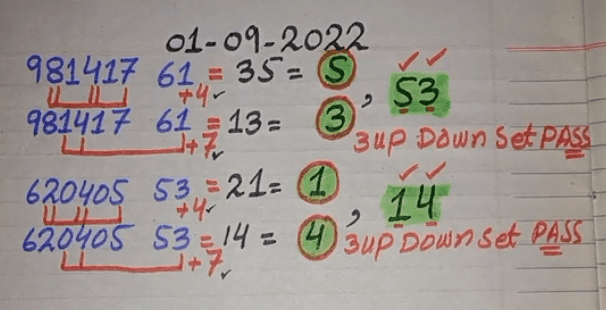 01-09-2022
981417 61 = 35 = 5
+4✓
, 53
981417 61 = 13 = 3
+7✓
3up Down Set PASS
620405 53 = 21 = 1
+4✓
, 14
620405 53 = 14 = 4
+7✓
3up Down Set PASS